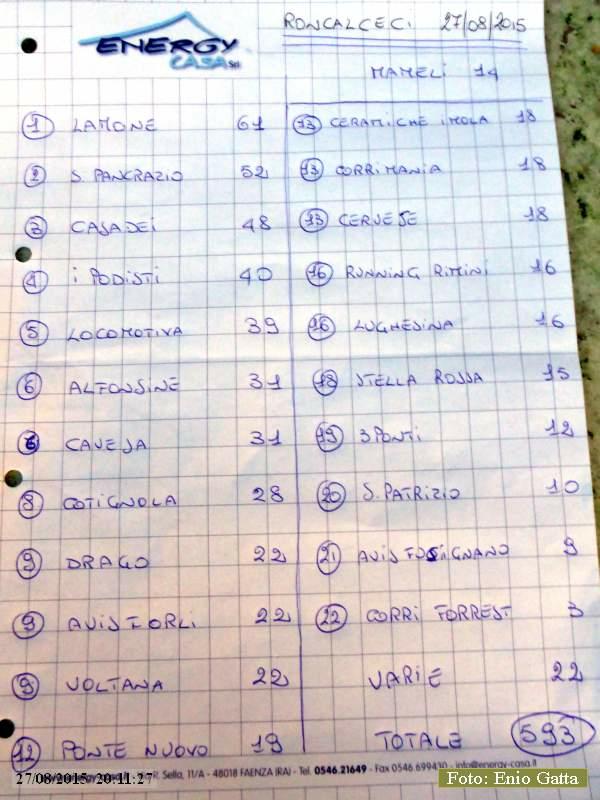 ENERGY
CASA Srl
RONCALCECI 27/08/2015
MAMELI 14
1 LAMONE 61
2 S. PANCRAZIO 52
3 CASADEI 48
4 i PODISTI 40
5 LOCOMOTIVA 39
6 ALFONSINE 31
6 CAVEJA 31
8 COTIGNOLA 28
9 DRAGO 22
9 AVIS FORLI 22
9 VOLTANA 22
12 PONTE NUOVO 19
13 CERAMICHE IMOLA 18
13 CORRIMANIA 18
13 CERVESE 18
16 RUNNING RIMINI 16
16 LUGHESINA 16
18 STELLA ROSSA 15
19 3 PONTI 12
20 S. PATRIZIO 10
21 AVIS FOSIGNANO 9
22 CORRI FORREST 3
VARIE 22
TOTALE 593
R. Sella, 11/A - 48018 FAENZA (RA) - Tel. 0546.21649 - Fax 0546.699410 - info@energy-casa.it
27/08/2015 20:11:27
Foto: Enio Gatta